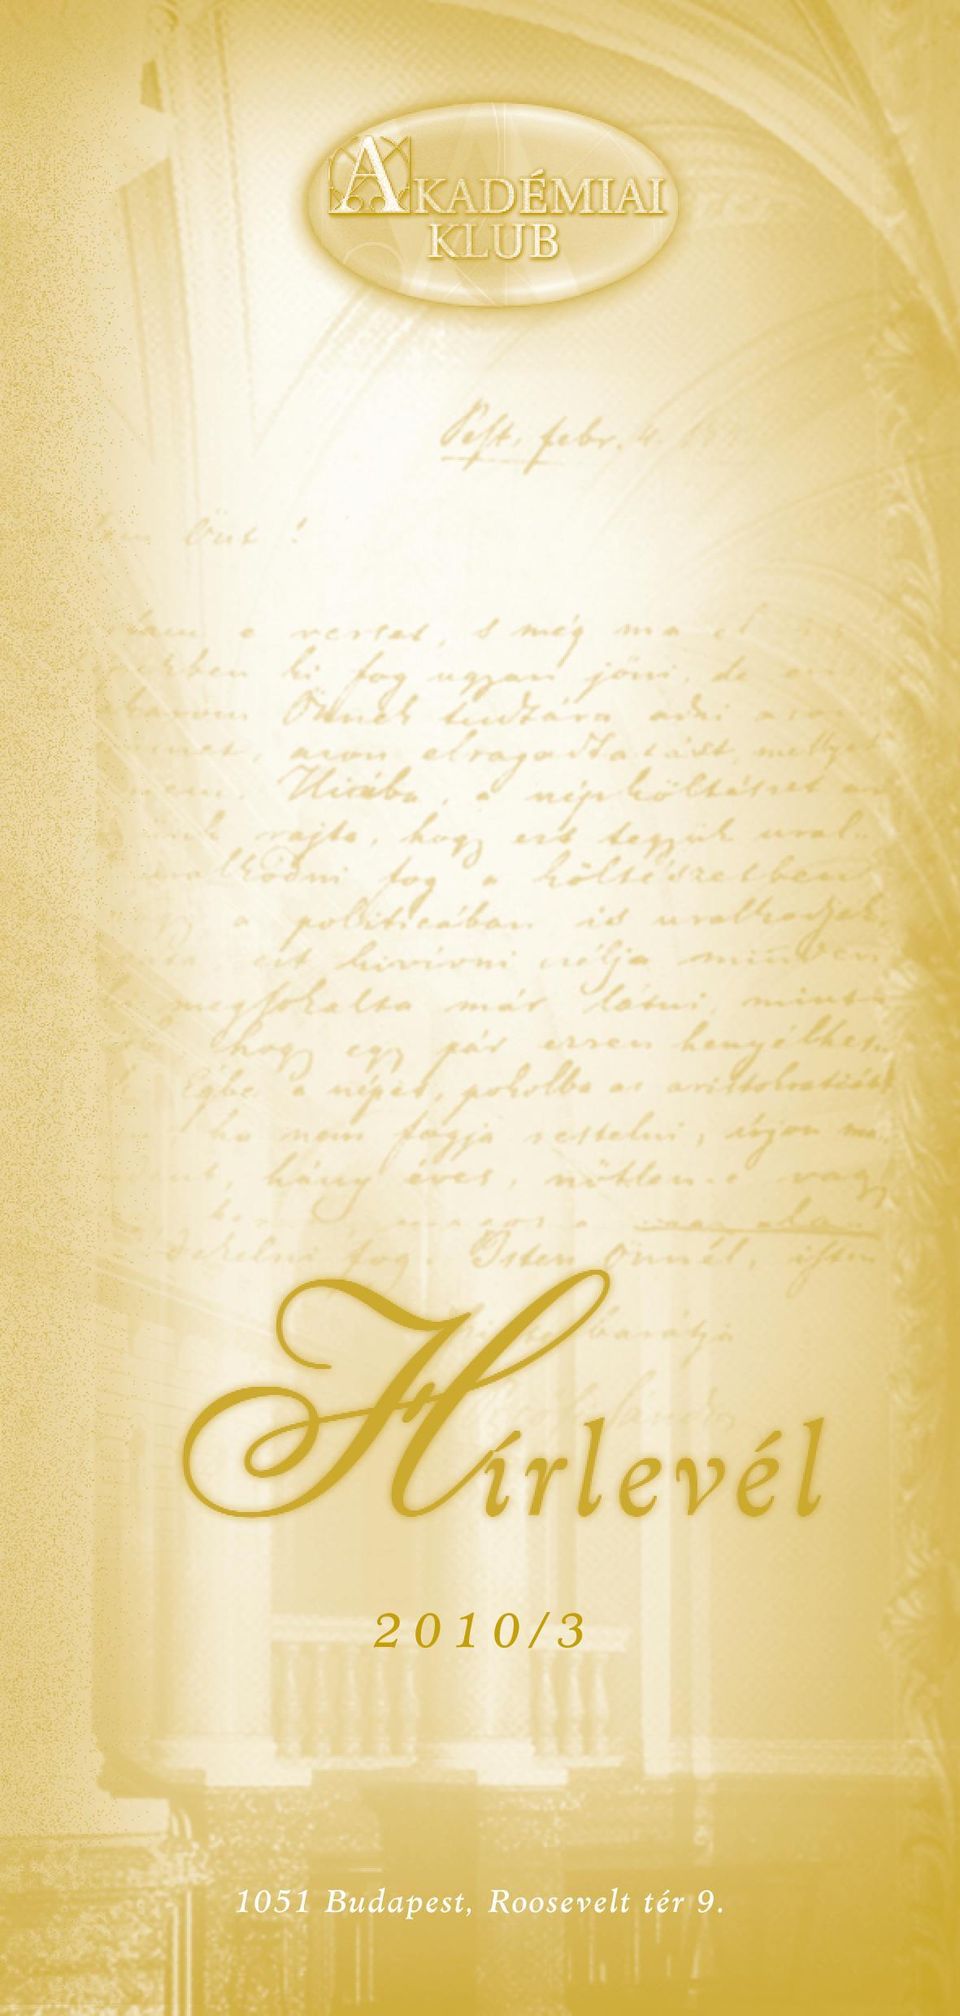 AKADÉMIAI
KLUB
Pest, febr. 4.
Önt !
a verset, s még ma el
ki fog ugyan jőni, de
Önnek tudtára adni azon
azon elragadtatást, mellyet
Hiába, a népköltészet
rajta, hogy ezt tegyük ural-
uralkodni fog a költészetben
a politicában is uralkodjék
ezt kivívni célja minden
megsokalta már látni, mint
hogy egy pár ezren henyélhes-
Égbe a népet, pokolba az aristokratiát!
ha nem fogja restelni, írjon
hány éves, nőtlen-e vagy
Isten Önnel, isten
barátja
Hírlevél
2010/3
1051 Budapest, Roosevelt tér 9.